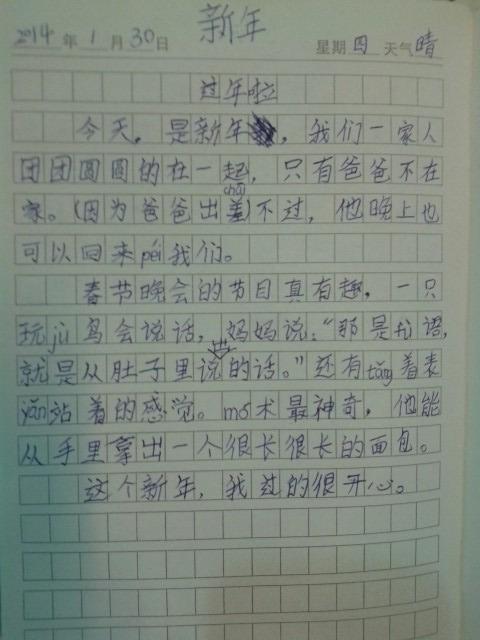 新年
2014年1月30日 星期四 天气晴
过年啦
今天，是新年，我们一家人
团团圆圆的在一起，只有爸爸不在
家。（因为爸爸出差chāi）不过，他晚上也
可以回来péi我们。
春节晚会的节目真有趣，一只
玩jù鸟会说话，妈妈说：“那是fù语，
就是从肚子里说的话。”还有tǎng着表
yǎn站着的感觉。mó术最神奇，他能
从手里拿出一个很长很长的面包。
这个新年，我过的很开心。